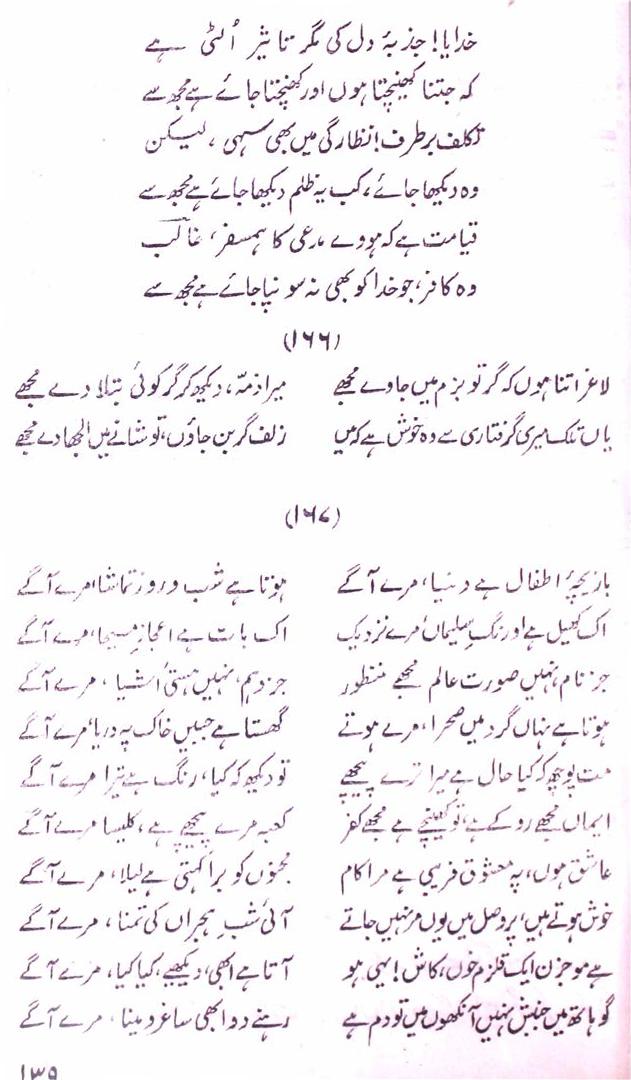 خدایا! جذبۂ دل کی مگر تاثیر اُلٹی ہے
کہ جتنا کھینچتا ہوں اور کھنچتا جائے ہے مجھ سے
تکلف برطرف! نظارگی میں بھی سہی، لیکن
وہ دیکھا جائے، کب یہ ظلم دیکھا جائے ہے مجھ سے
قیامت ہے کہ ہووے مدعی کا ہمسفر، غالب
وہ کافر، جو خدا کو بھی نہ سونپا جائے ہے مجھ سے
(۱۶۶)
لاغر اتنا ہوں کہ گر تو بزم میں جا دے مجھے میرا ذمہ، دیکھ کر گر کوئی بتلا دے مجھے
یاں تلک میری گرفتاری سے وہ خوش ہے کہ میں زلف گر بن جاؤں، تو شانے میں الجھا دے مجھے
(۱۶۷)
بازیچۂ اطفال ہے دنیا، مرے آگے ہوتا ہے شب و روز تماشا، مرے آگے
اک کھیل ہے اورنگِ سلیماں مرے نزدیک اک بات ہے اعجازِ مسیحا، مرے آگے
جز نام، نہیں صورت عالم مجھے منظور جز وہم، نہیں ہستیٔ اشیا، مرے آگے
ہوتا ہے نہاں گرد میں صحرا، مرے ہوتے گھستا ہے جبیں خاک پہ دریا، مرے آگے
مت پوچھ کہ کیا حال ہے میرا ترے پیچھے تو دیکھ کہ کیا، رنگ ہے تیرا مرے آگے
ایماں مجھے روکے ہے، تو کھینچے ہے مجھے کفر کعبہ مرے پیچھے ہے، کلیسا مرے آگے
عاشق ہوں، پہ معشوق فریبی ہے مرا کام مجنوں کو برا کہتی ہے لیلا، مرے آگے
خوش ہوتے ہیں، پر وصل میں یوں مر نہیں جاتے آئی شبِ ہجراں کی تمنا، مرے آگے
ہے موجزن ایک قلزمِ خوں، کاش! یہی ہو آتا ہے ابھی، دیکھیے، کیا کیا، مرے آگے
گو ہاتھ میں جنبش نہیں آنکھوں میں تو دم ہے رہنے دو ابھی ساغر و مینا، مرے آگے
۱۳۹